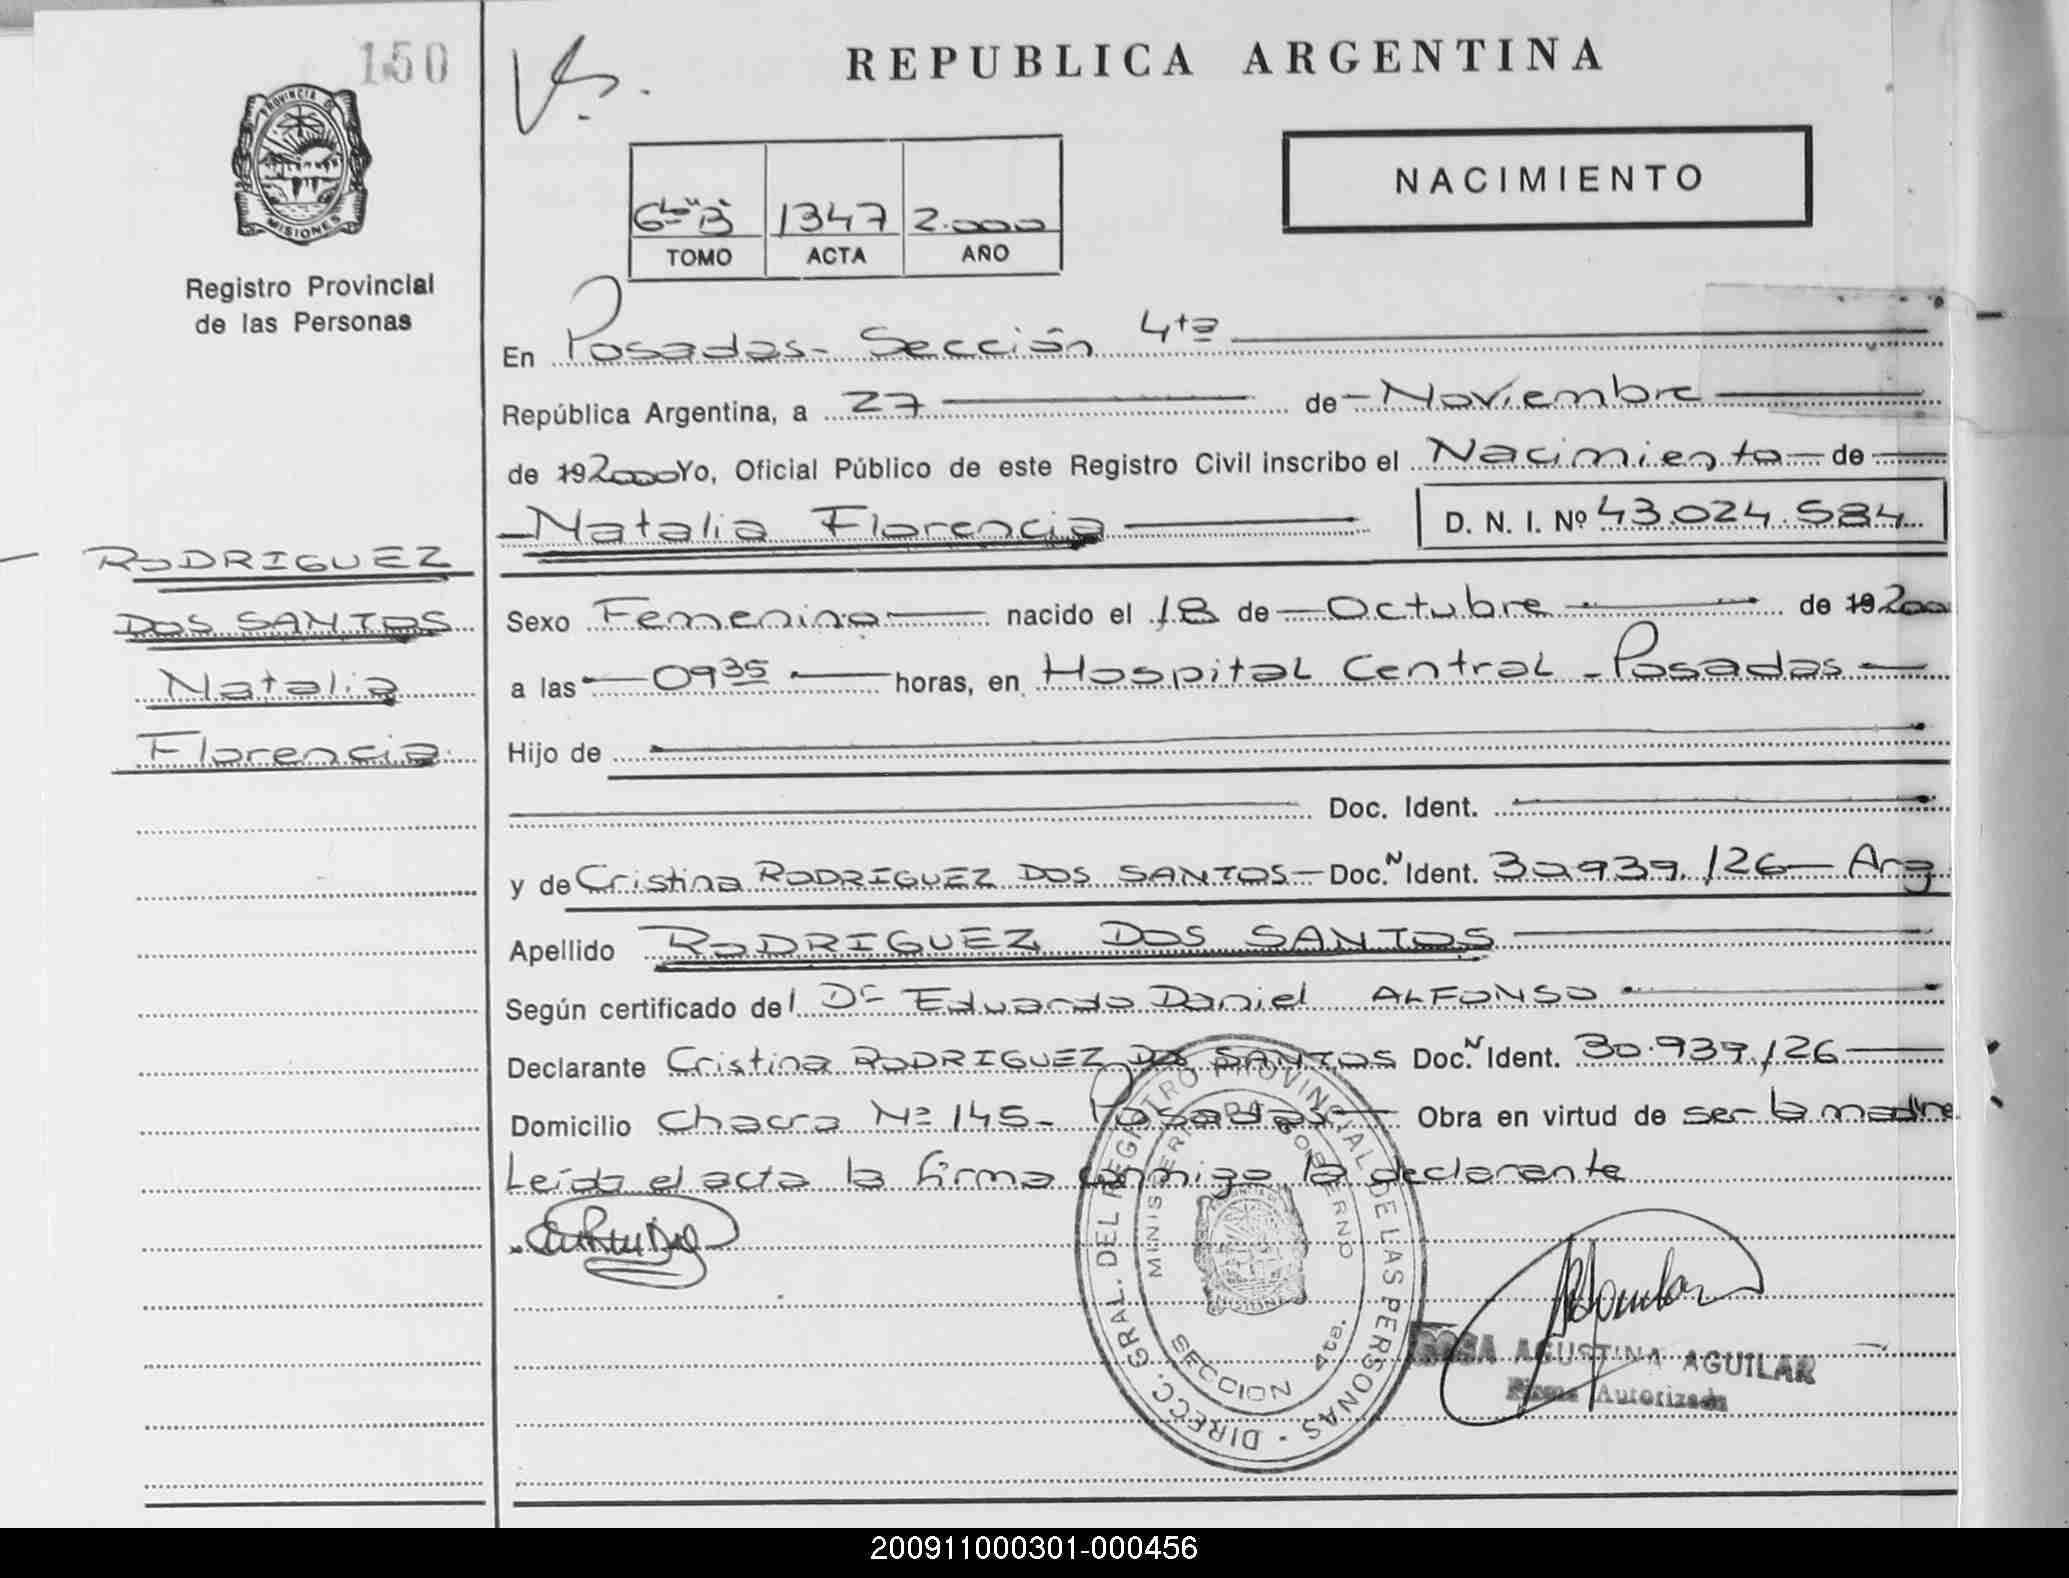 150
PROVINCIA DE
MISIONES
Registro Provincial
de las Personas
REPUBLICA ARGENTINA
NACIMIENTO
6to "B" 1347 2.000
TOMO ACTA AÑO
En Posadas - Sección 4ta
República Argentina, a 27 de Noviembre
de 192000 Yo, Oficial Público de este Registro Civil inscribo el Nacimiento de
Natalia Florencia D. N. I. Nº 43.024.584
RODRIGUEZ
DOS SANTOS
Natalia
Florencia
Sexo Femenino nacido el 18 de Octubre de 192000
a las 0935 horas, en Hospital Central - Posadas
Hijo de
Doc. Ident.
y de Cristina RODRIGUEZ DOS SANTOS - Doc. N Ident. 30939/26 - Arg
Apellido RODRIGUEZ DOS SANTOS
Según certificado del Dr Eduardo Daniel ALFONSO
Declarante Cristina RODRIGUEZ DOS SANTOS Doc. N Ident. 30.939/26
Domicilio Chacra Nº 145 - Posadas Obra en virtud de ser la madre
Leída el acta la firma conmigo la declarante
DIRECC. GRAL. DEL REGISTRO PROVINCIAL DE LAS PERSONAS -
MINISTERIO DE GOBIERNO
SECCION 4ta.
ROSA AGUSTINA AGUILAR
Firma Autorizada
200911000301-000456